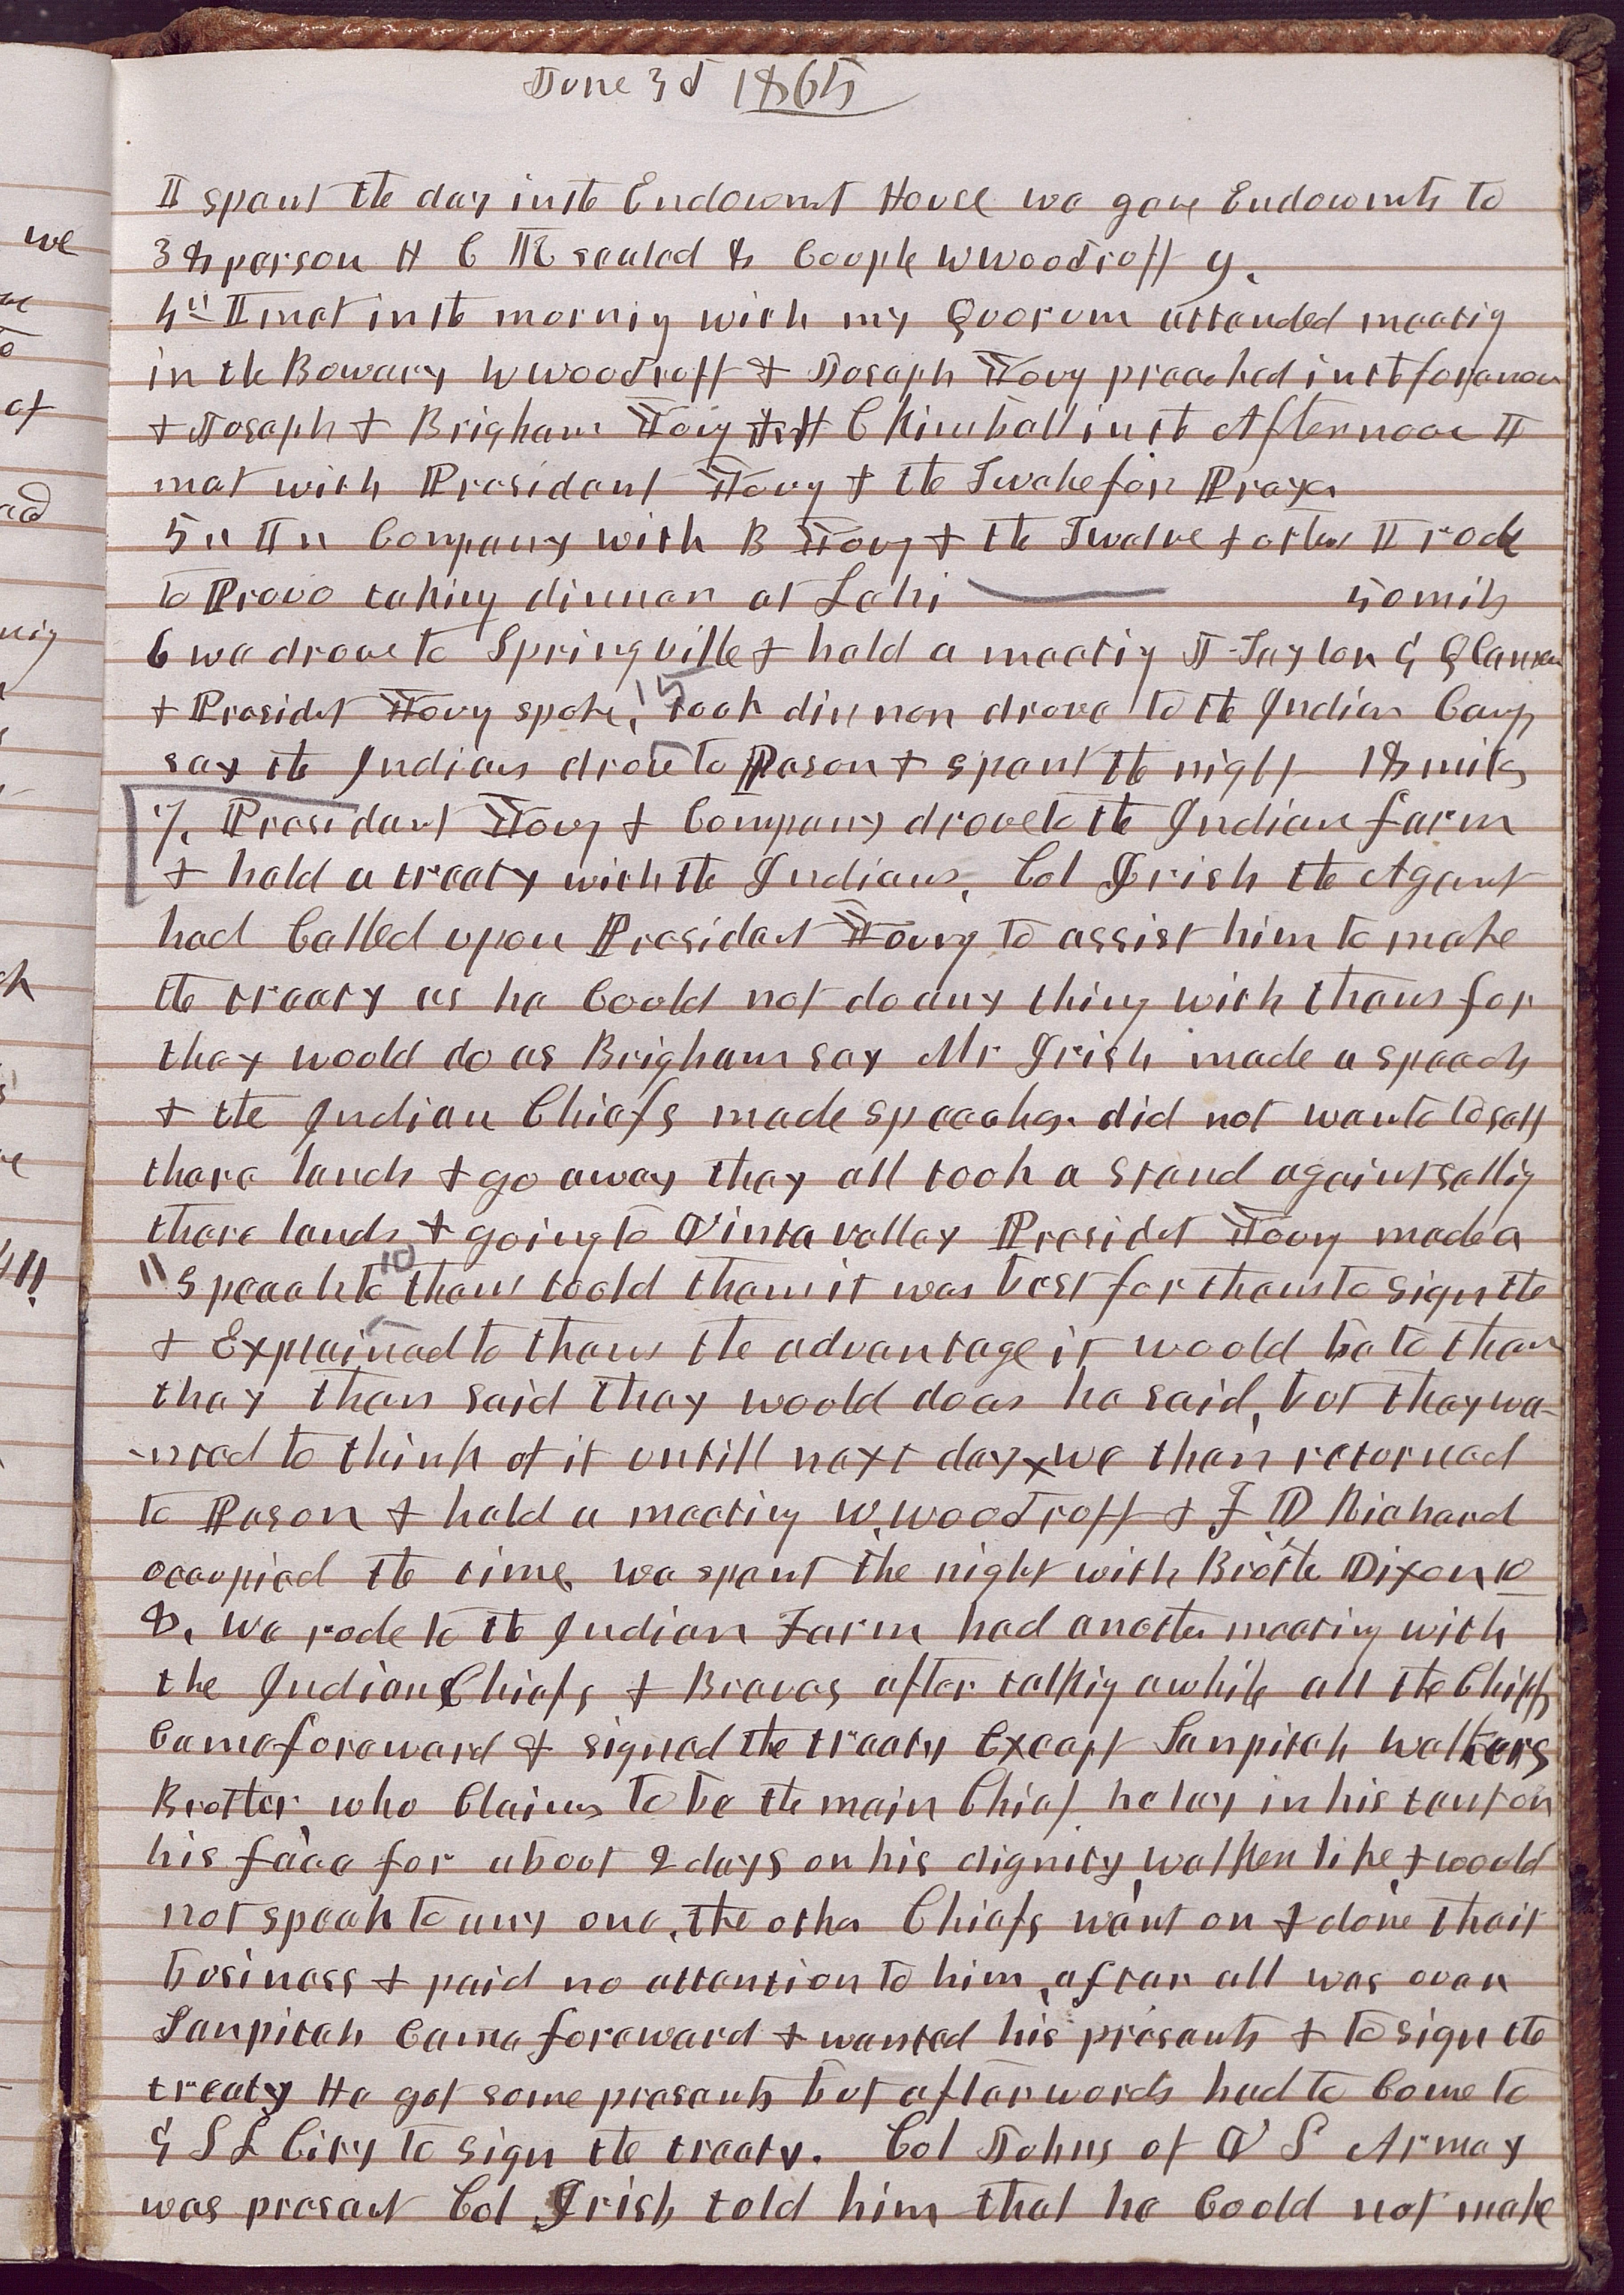 June 3d 1865
I spent the day in the Endowmt House we gave Endowmts to
38 person H C K sealed 8 Couple W Woodruff 9.
4" I met in the morning with my Quorum attended meeting
in the Bowery W Woodruff & Joseph Young preached in the forenoon
& Joseph & Brigham Young & H C Kimball in the Afternoon I
met with President Young & the Twelve for Prayer
5" In Company with B Young & the Twelve & others I rode
to Provo taking dinner at Lehi 50 mils
6 we drove to Springville & held a meeting J Taylor G Q Cannon
& Presidet Young spoke, 15 took dinner drove to the Indian Camp
say the Indians drove to Payson & spent the night 18 miles
7. President Young & Company drove to the Indian farm
& held a treaty with the Indians. Col Irish the Agent
had Called upon President Young to assist him to make
the treaty as he Could not do any thing with them for
they would do as Brigham say Mr Irish made a speech
& the Indian Chiefs made speeches. did not want to sell
there lands & go away they all took a stand against sellig
there lands & going to Uinta valley Presidet Young made a
" speech to 10 them toold them it was best for them to sign the
& Explained to them the advantage it would be to them
they then said they would do as he said, but they wa-
-nted to think of it untill next day x we then returned
to Pason & held a meeting W. Woodruff & F D Richard
occupied the time. we spent the night with Brothe Dixon 10
8. We rode to the Indian Farm had another meeting with
the Indians Chiefs & Braves after talkig awhile all the Chiefs
Came foreward & signed the treaty Except Sanpitch walkers
Brother who Claims to be the main Chief he lay in his tent on
his face for about 2 days on his dignity, walker like, & would
not speak to any one, the other Chiefs went on & done their
business & paid no attention to him, after all was over
Sanpitch Came foreward & wanted his presents & to sign the
treaty He got some presents but afterwords had to Come to
G S L City to sign the treaty. Col Johns of U S Armey
was present Col Irish told him that he Could not make
we
of
ad
nig